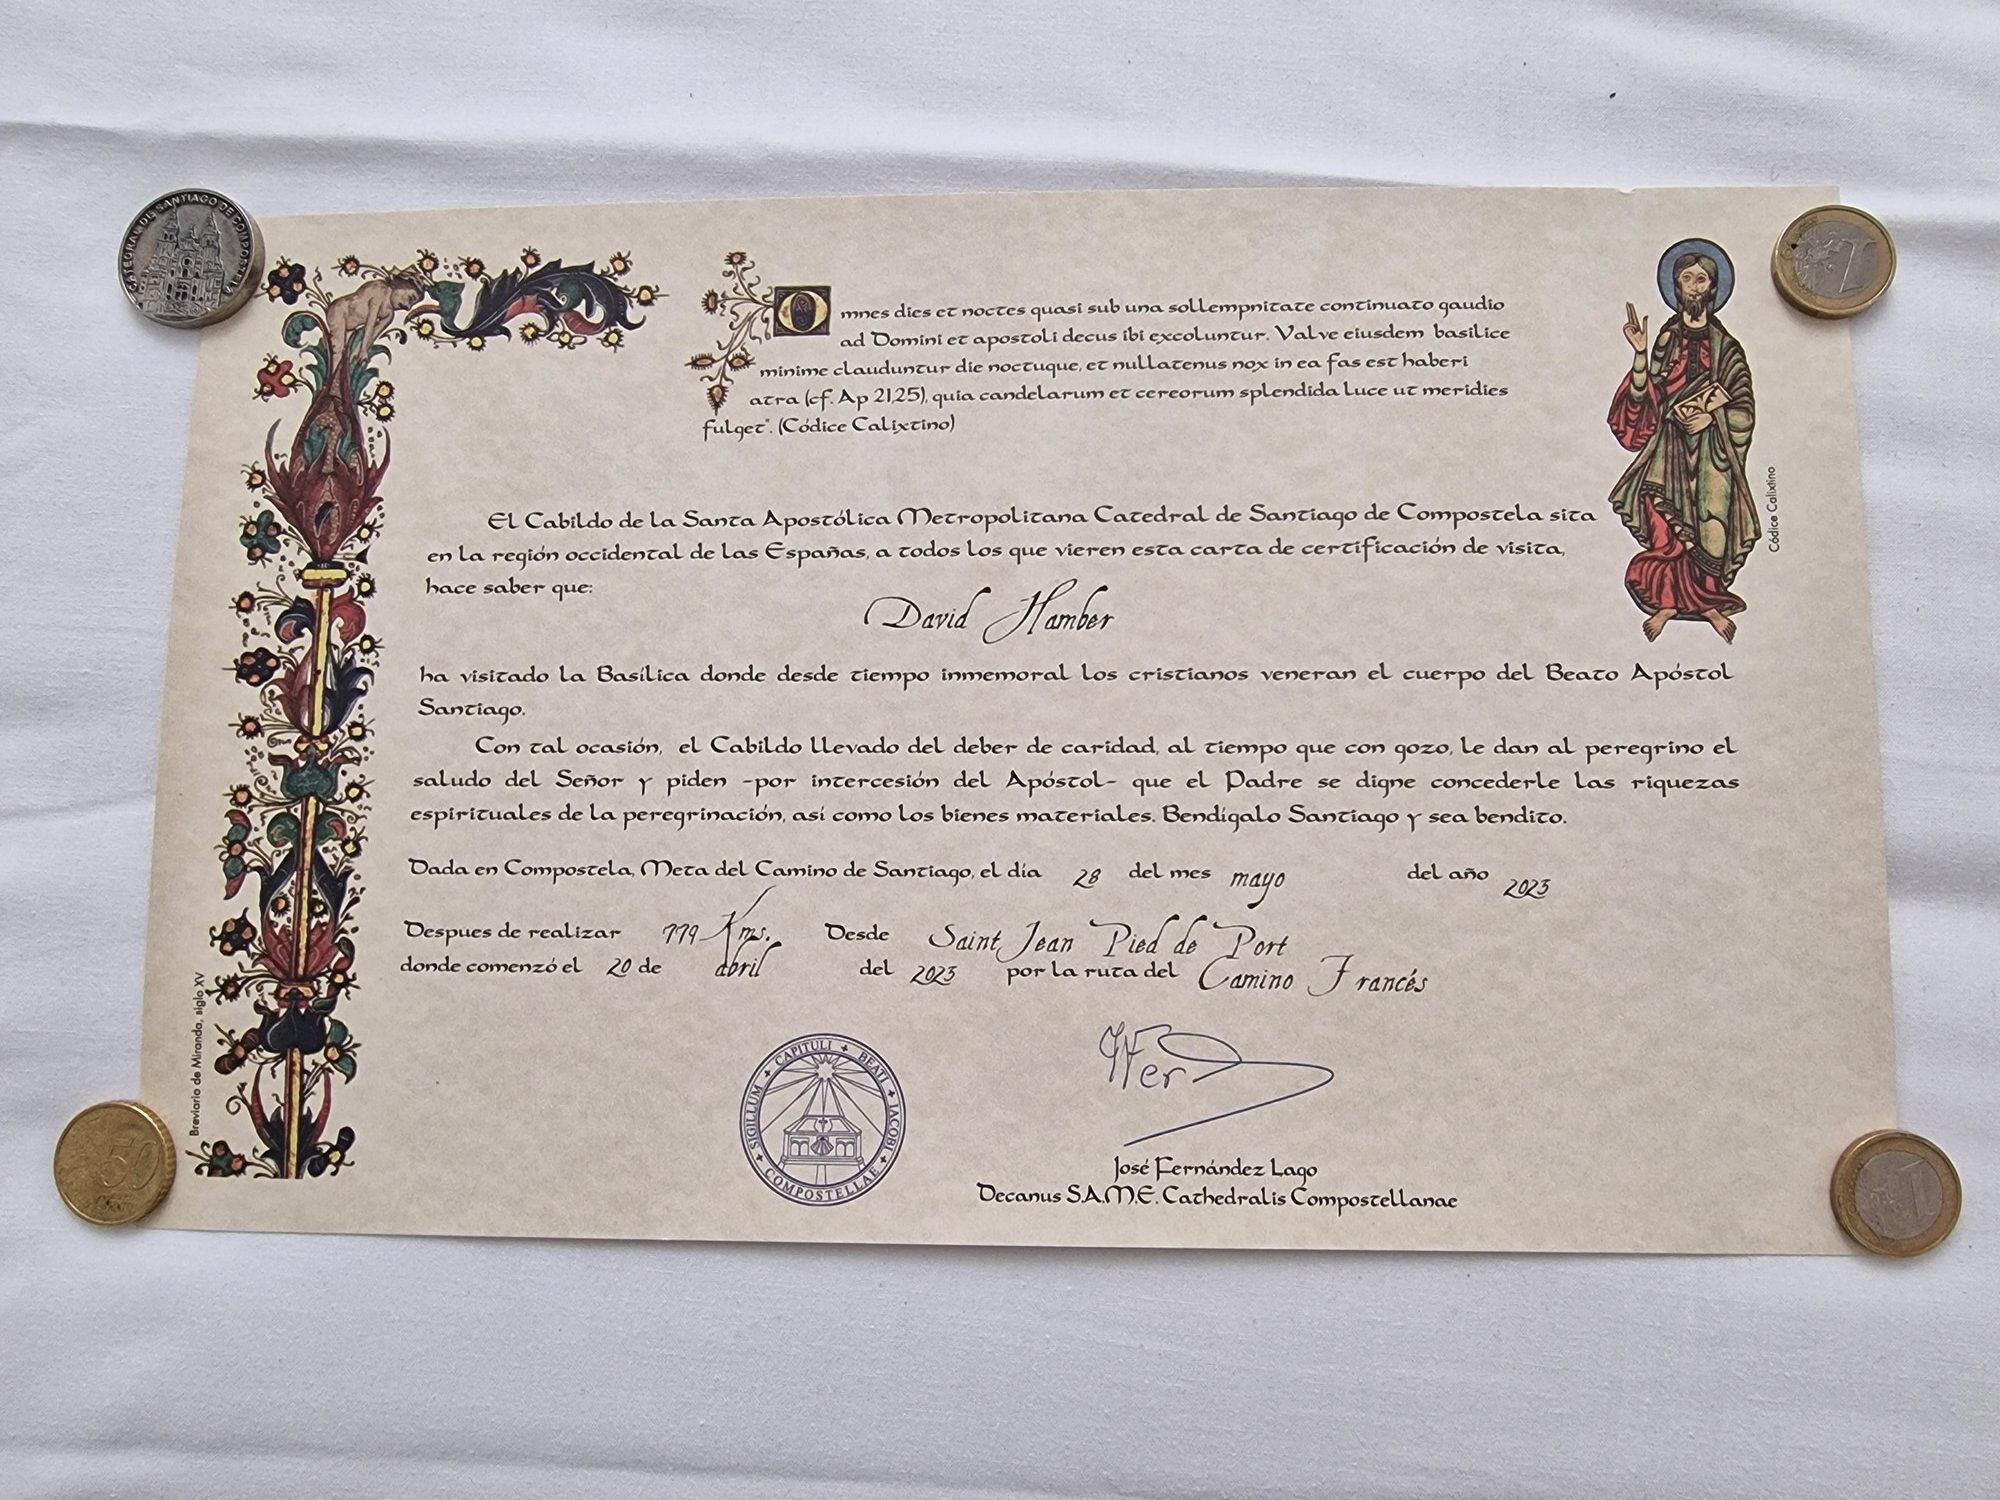 CATEDRAL DE SANTIAGO DE COMPOSTELA
Omnes dies et noctes quasi sub una sollempnitate continuato gaudio
ad Domini et apostoli decus ibi excoluntur. Valve eiusdem basilice
minime clauduntur die noctuque, et nullatenus nox in ea fas est haberi
atra (cf. Ap 21,25), quia candelarum et cereorum splendida luce ut meridies
fulget". (Códice Calixtino)
Códice Calixtino
El Cabildo de la Santa Apostólica Metropolitana Catedral de Santiago de Compostela sita
en la región occidental de las Españas, a todos los que vieren esta carta de certificación de visita,
hace saber que:
David Hamber
ha visitado la Basílica donde desde tiempo inmemoral los cristianos veneran el cuerpo del Beato Apóstol
Santiago.
Con tal ocasión, el Cabildo llevado del deber de caridad, al tiempo que con gozo, le dan al peregrino el
saludo del Señor y piden -por intercesión del Apóstol- que el Padre se digne concederle las riquezas
espirituales de la peregrinación, así como los bienes materiales. Bendígalo Santiago y sea bendito.
Dada en Compostela, Meta del Camino de Santiago, el día 28 del mes mayo del año 2023
Despues de realizar 779 Kms. Desde Saint Jean Pied de Port
donde comenzó el 20 de abril del 2023 por la ruta del Camino Francés
Breviario de Miranda, siglo XV
SIGILLUM + CAPITULI + BEATI + IACOBI + COMPOSTELLAE +
José Fernández Lago
Decanus S.A.M.E. Cathedralis Compostellanae
50
1
1